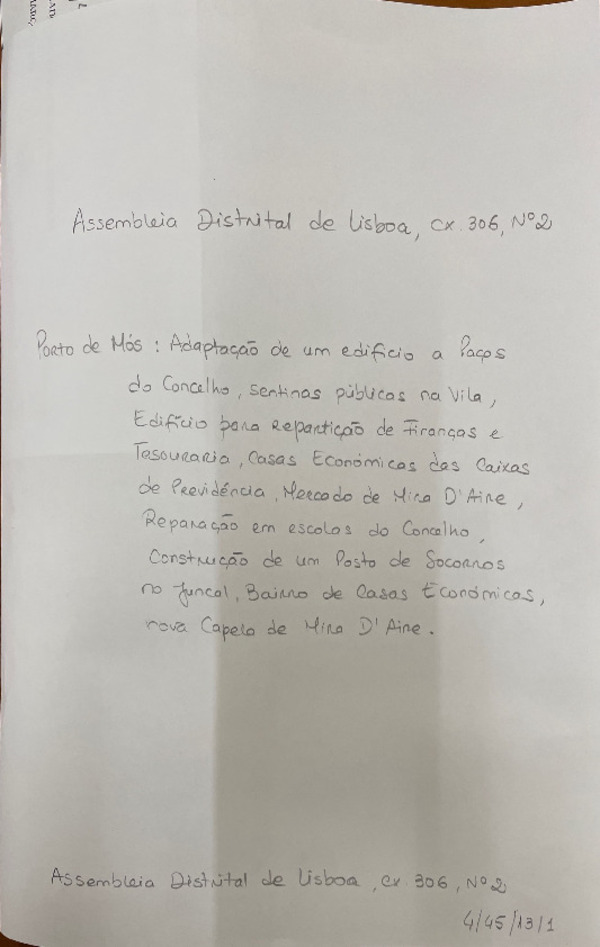 Assembleia Distrital de Lisboa, cx. 306, Nº 2
Porto de Mós : Adaptação de um edifício a Paços
do Concelho, sentinas públicas na Vila,
Edifício para Repartição de Finanças e
Tesouraria, Casas Económicas das Caixas
de Previdência, Mercado de Mira D'Aire,
Reparação em escolas do Concelho,
Construção de um Posto de Socorros
no Juncal, Bairro de Casas Económicas,
nova Capela de Mira D'Aire.
Assembleia Distrital de Lisboa, cx. 306, Nº 2
4/45/13/1